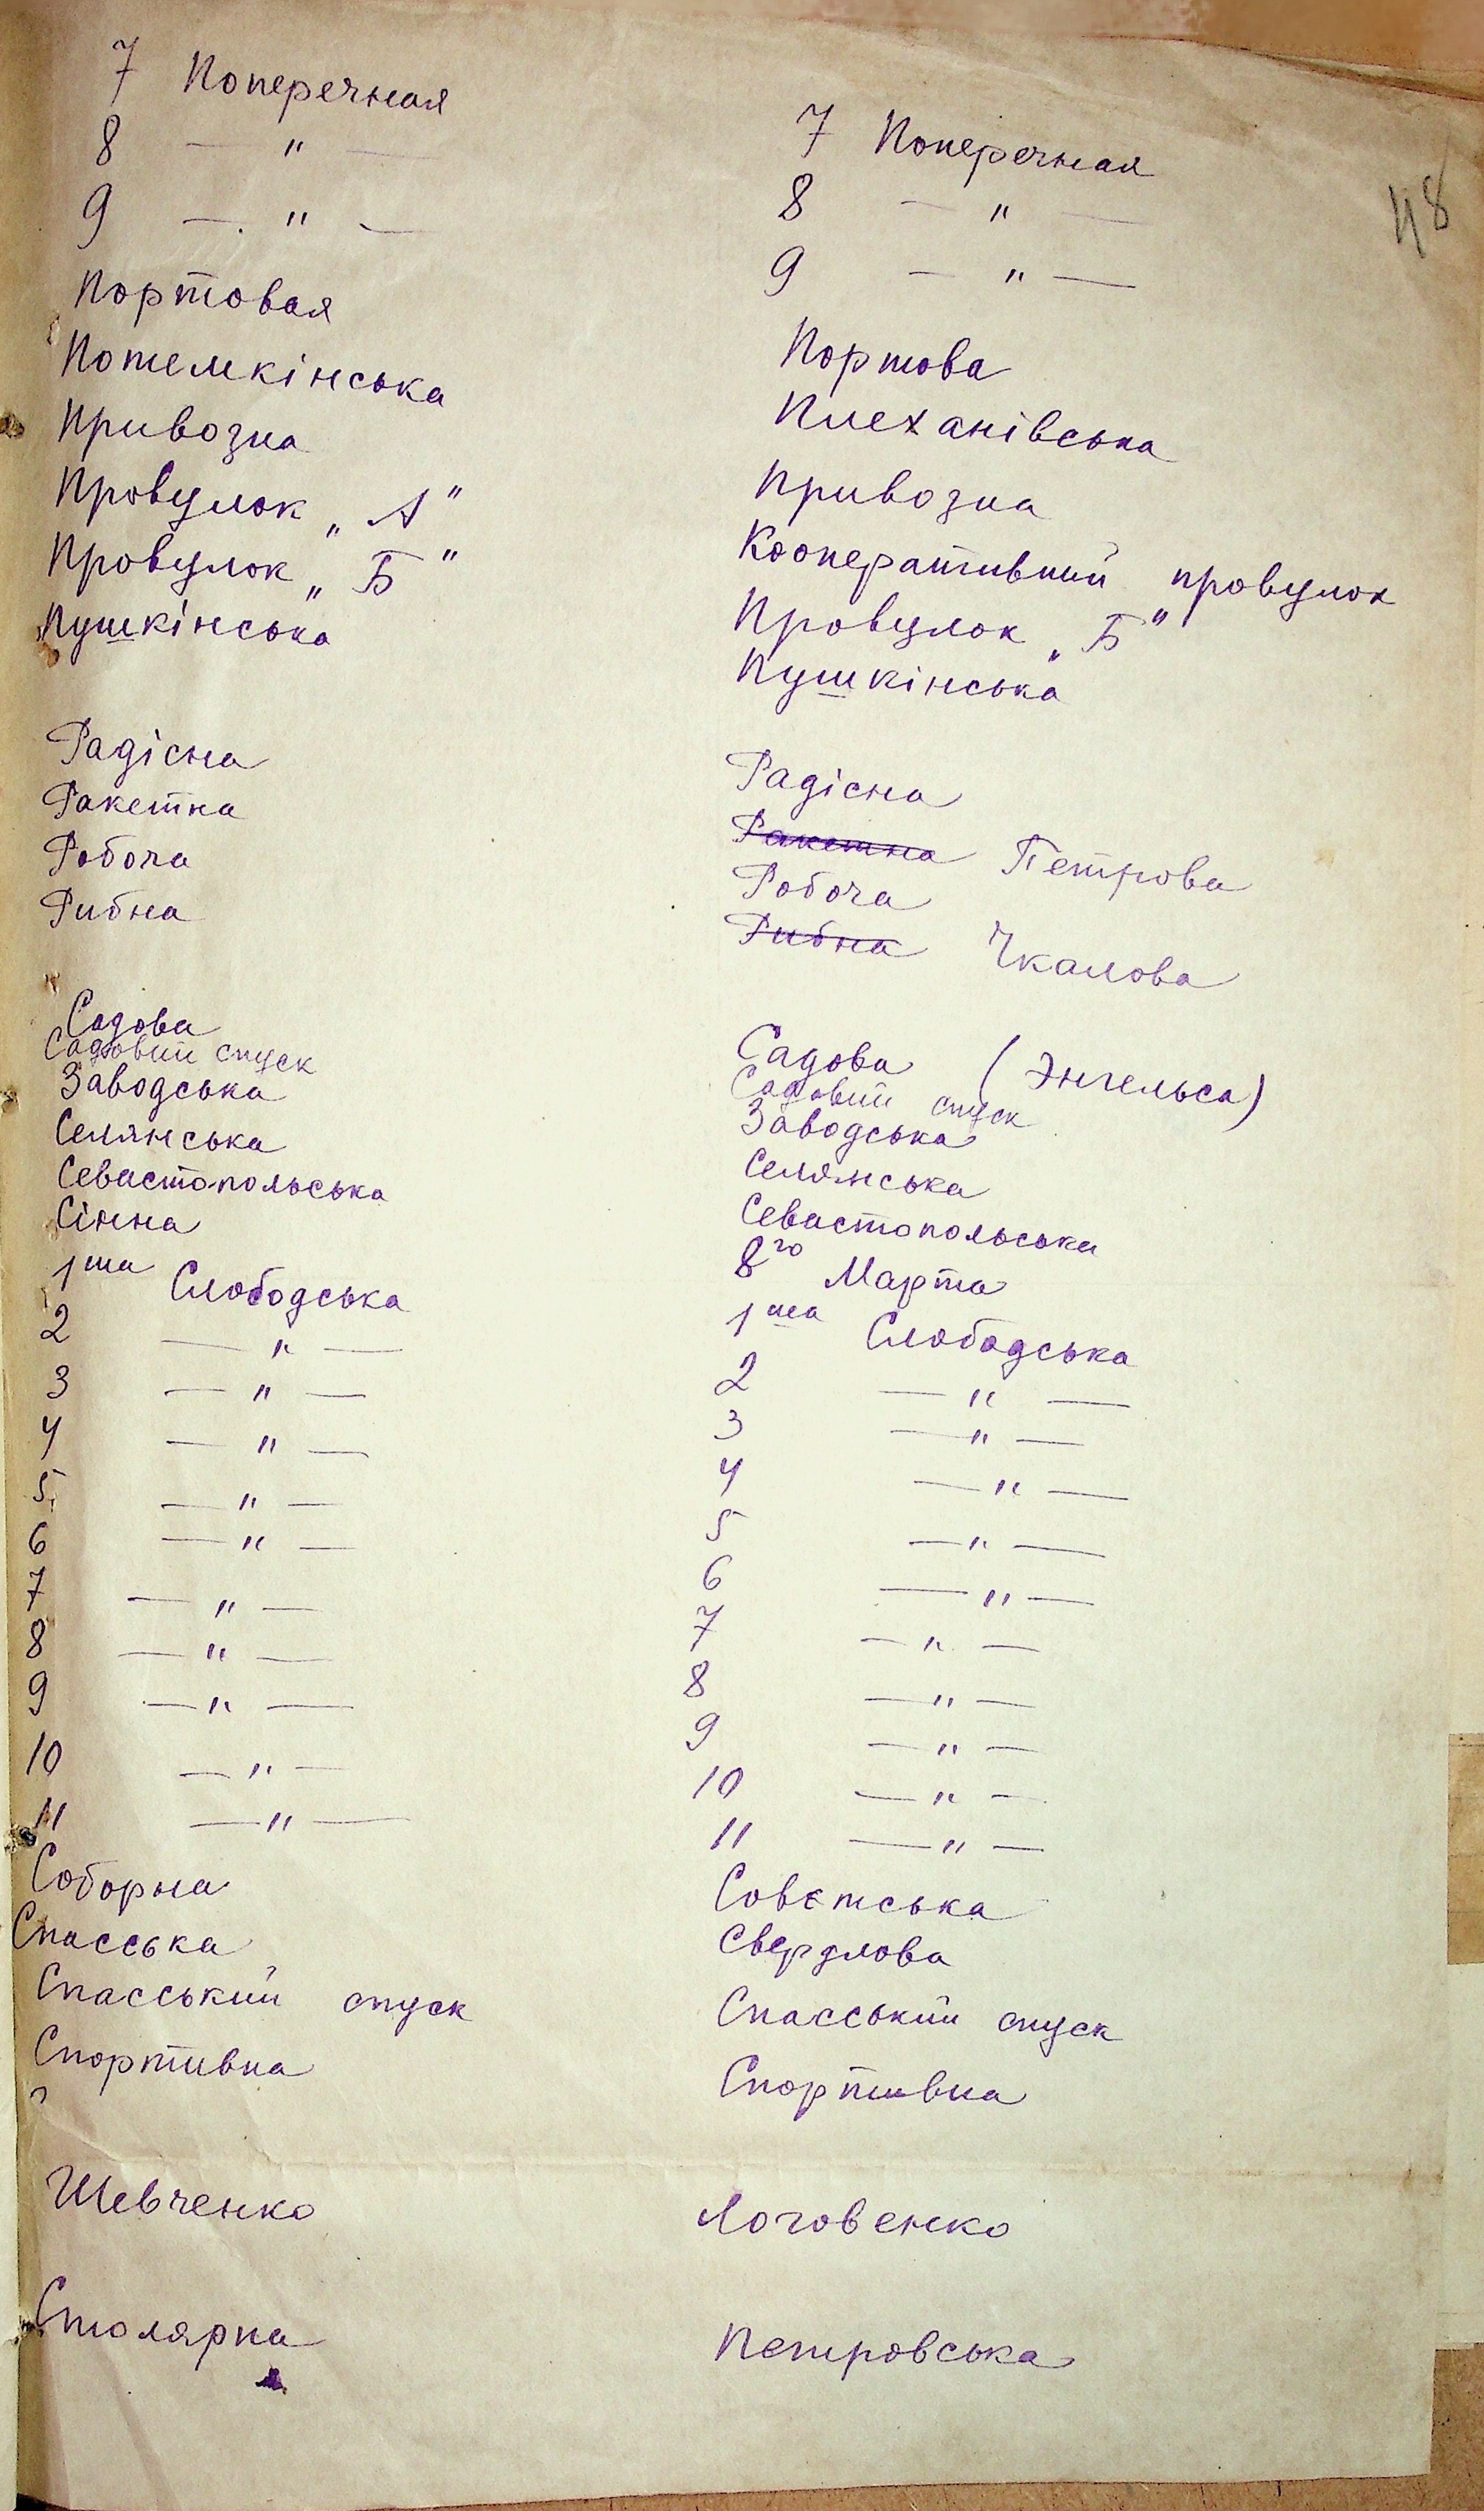 7 Поперечная
8 — " —
9 — " —
Портовая
Потемкінська
Привозна
Провулок „А"
Провулок „Б"
Пушкінська
Радісна
Ракетна
Робоча
Рибна
Садова
Садовий спуск
Заводська
Селянська
Севастопольська
Сінна
1ша Слободська
2 — " —
3 — " —
4 — " —
5 — " —
6 — " —
7 — " —
8 — " —
9 — " —
10 — " —
11 — " —
Соборна
Спасська
Спасський спуск
Спортивна
Шевченко
Столярна
48
7 Поперечная
8 — " —
9 — " —
Портова
Плеханівська
Привозна
Кооперативний провулок
Провулок „Б"
Пушкінська
Радісна
Ракетна Петрова
Робоча
Рибна Чкалова
Садова (Энгельса)
Садовий спуск
Заводська
Селянська
Севастопольська
8го Марта
1ша Слободська
2 — " —
3 — " —
4 — " —
5 — " —
6 — " —
7 — " —
8 — " —
9 — " —
10 — " —
11 — " —
Совєтська
Свердлова
Спасський спуск
Спортивна
Логовенко
Петровська